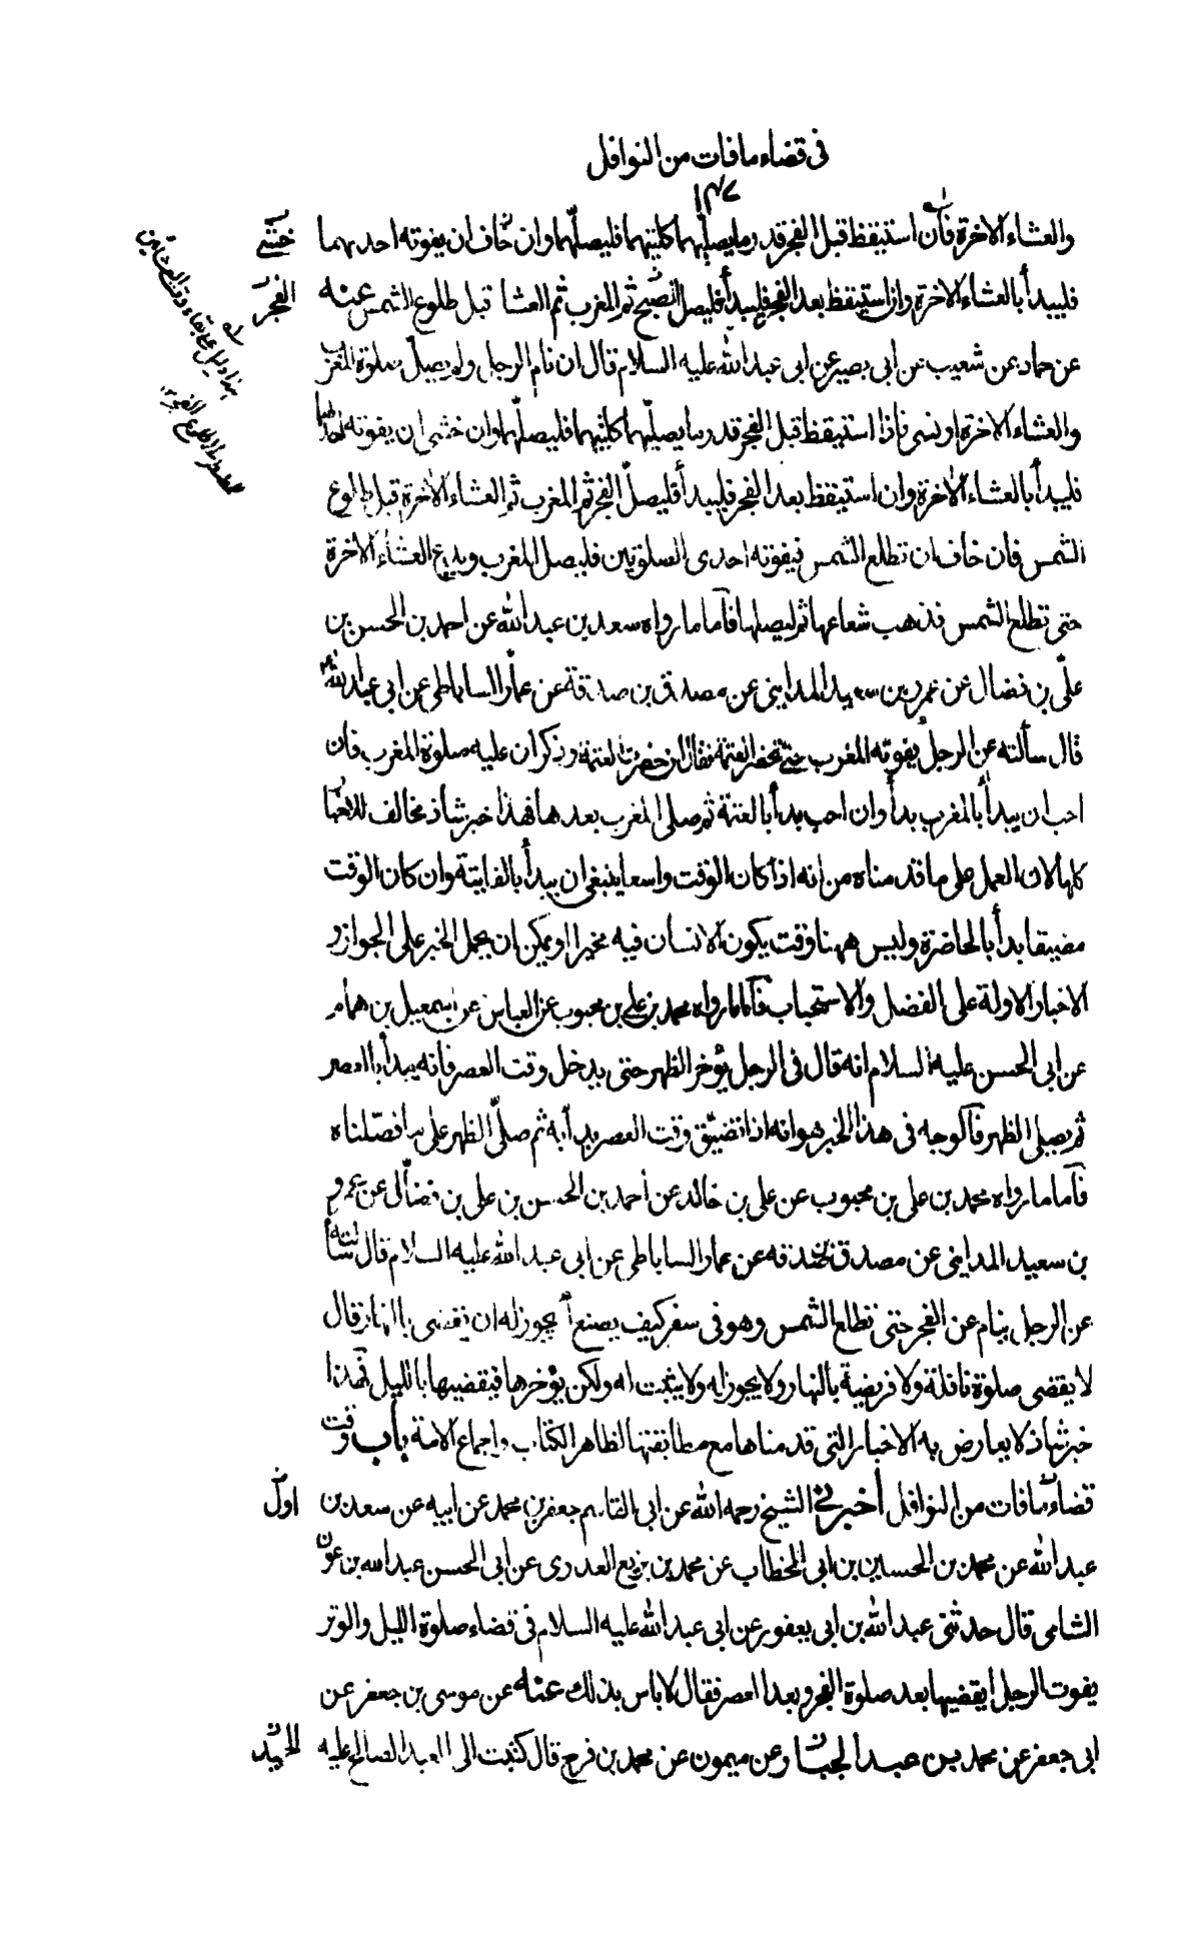 في قضاء ما فات من النوافل
١٤٧
والعشاء الاخرة فان استيقظ قبل الفجر قدر ما يصليهما كلتيهما فليصلهما وان خاف ان يفوته احديهما
خشي
فليبدأ بالعشاء الاخرة وان استيقظ بعد الفجر فليبدأ فليصل الصبح ثم المغرب ثم العشا قبل طلوع الشمس عنه
الفجر
عن حماد عن شعيب عن ابي بصير عن ابي عبد الله عليه السلام قال ان نام الرجل ولم يصل صلوة المغرب
والعشاء الاخرة او نسي فاذا استيقظ قبل الفجر قدر ما يصليهما كلتيهما فليصلهما وان خشي ان يفوته احديهما
فليبدأ بالعشاء الاخرة وان استيقظ بعد الفجر فليبدأ فليصل الفجر ثم المغرب ثم العشاء الاخرة قبل طلوع
الشمس فان خاف ان تطلع الشمس فيفوته احدى الصلوتين فليصل المغرب ويدع العشاء الاخرة
حتى تطلع الشمس فذهب شعاعها ثم ليصلها فاما ما رواه سعد بن عبد الله عن احمد بن الحسن بن
علي بن فضال عن عمرو بن سعيد المدايني عن مصدق بن صدقة عن عمار الساباطي عن ابي عبد الله
قال سألته عن الرجل يفوته المغرب حتى تحضر العتمة فقال ان حضرت العتمة وذكر ان عليه صلوة المغرب فان
احب ان يبدأ بالمغرب بدأ وان احب بدأ بالعتمة ثم صلى المغرب بعدها فهذا خبر شاذ مخالف للاخبار
كلها لان العمل على ما قدمناه من انه اذا كان الوقت واسعا ينبغي ان يبدأ بالفايتة وان كان الوقت
مضيقا بدأ بالحاضرة وليس ههنا وقت يكون الانسان فيه مخيرا او يمكن ان يحمل الخبر على الجواز و
الاخبار الاولة على الفضل والاستحباب فاما ما رواه محمد بن علي بن محبوب عن العباس عن اسمعيل بن همام
عن ابي الحسن عليه السلام انه قال في الرجل يؤخر الظهر حتى يدخل وقت العصر فانه يبدأ بالعصر
ثم يصلي الظهر فالوجه في هذا الخبر هو انه اذا تضيق وقت العصر بدأ به ثم صلى الظهر على ما فصلناه
فاما ما رواه محمد بن علي بن محبوب عن علي بن خالد عن أحمد بن الحسن بن علي بن فضال عن عمرو
بن سعيد المدايني عن مصدق بن صدقه عن عمار الساباطي عن ابي عبد الله عليه السلام قال سألته
عن الرجل ينام عن الفجر حتى تطلع الشمس وهو في سفر كيف يصنع أيجوز له ان يقضي بالنهار قال
لا يقضي صلوة نافلة ولا فريضة بالنهار ولا يجوز له ولا يثبت له ولكن يؤخرها فيقضيها بالليل فهذا
خبر شاذ لا يعارض به الاخبار التي قدمناها مع مطابقتها لظاهر الكتاب واجماع الامة باب وقت
قضاء ما فات من النوافل أخبرني الشيخ رحمه الله عن ابي القاسم جعفر بن محمد عن ابيه عن سعد بن
اول
عبد الله عن محمد بن الحسين بن ابي الخطاب عن محمد بن بزيع العدوى عن ابي الحسن عبد الله بن عون
الشامي قال حدثني عبد الله بن ابي يعفور عن ابي عبد الله عليه السلام في قضاء صلوة الليل والوتر
يفوت الرجل ايقضيها بعد صلوة الفجر وبعد العصر فقال لا باس بذلك عنه عن موسى بن جعفر عن
ابي جعفر عن محمد بن عبد الجبار عن ميمون عن محمد بن فرج قال كتبت الى العبد الصالح عليه